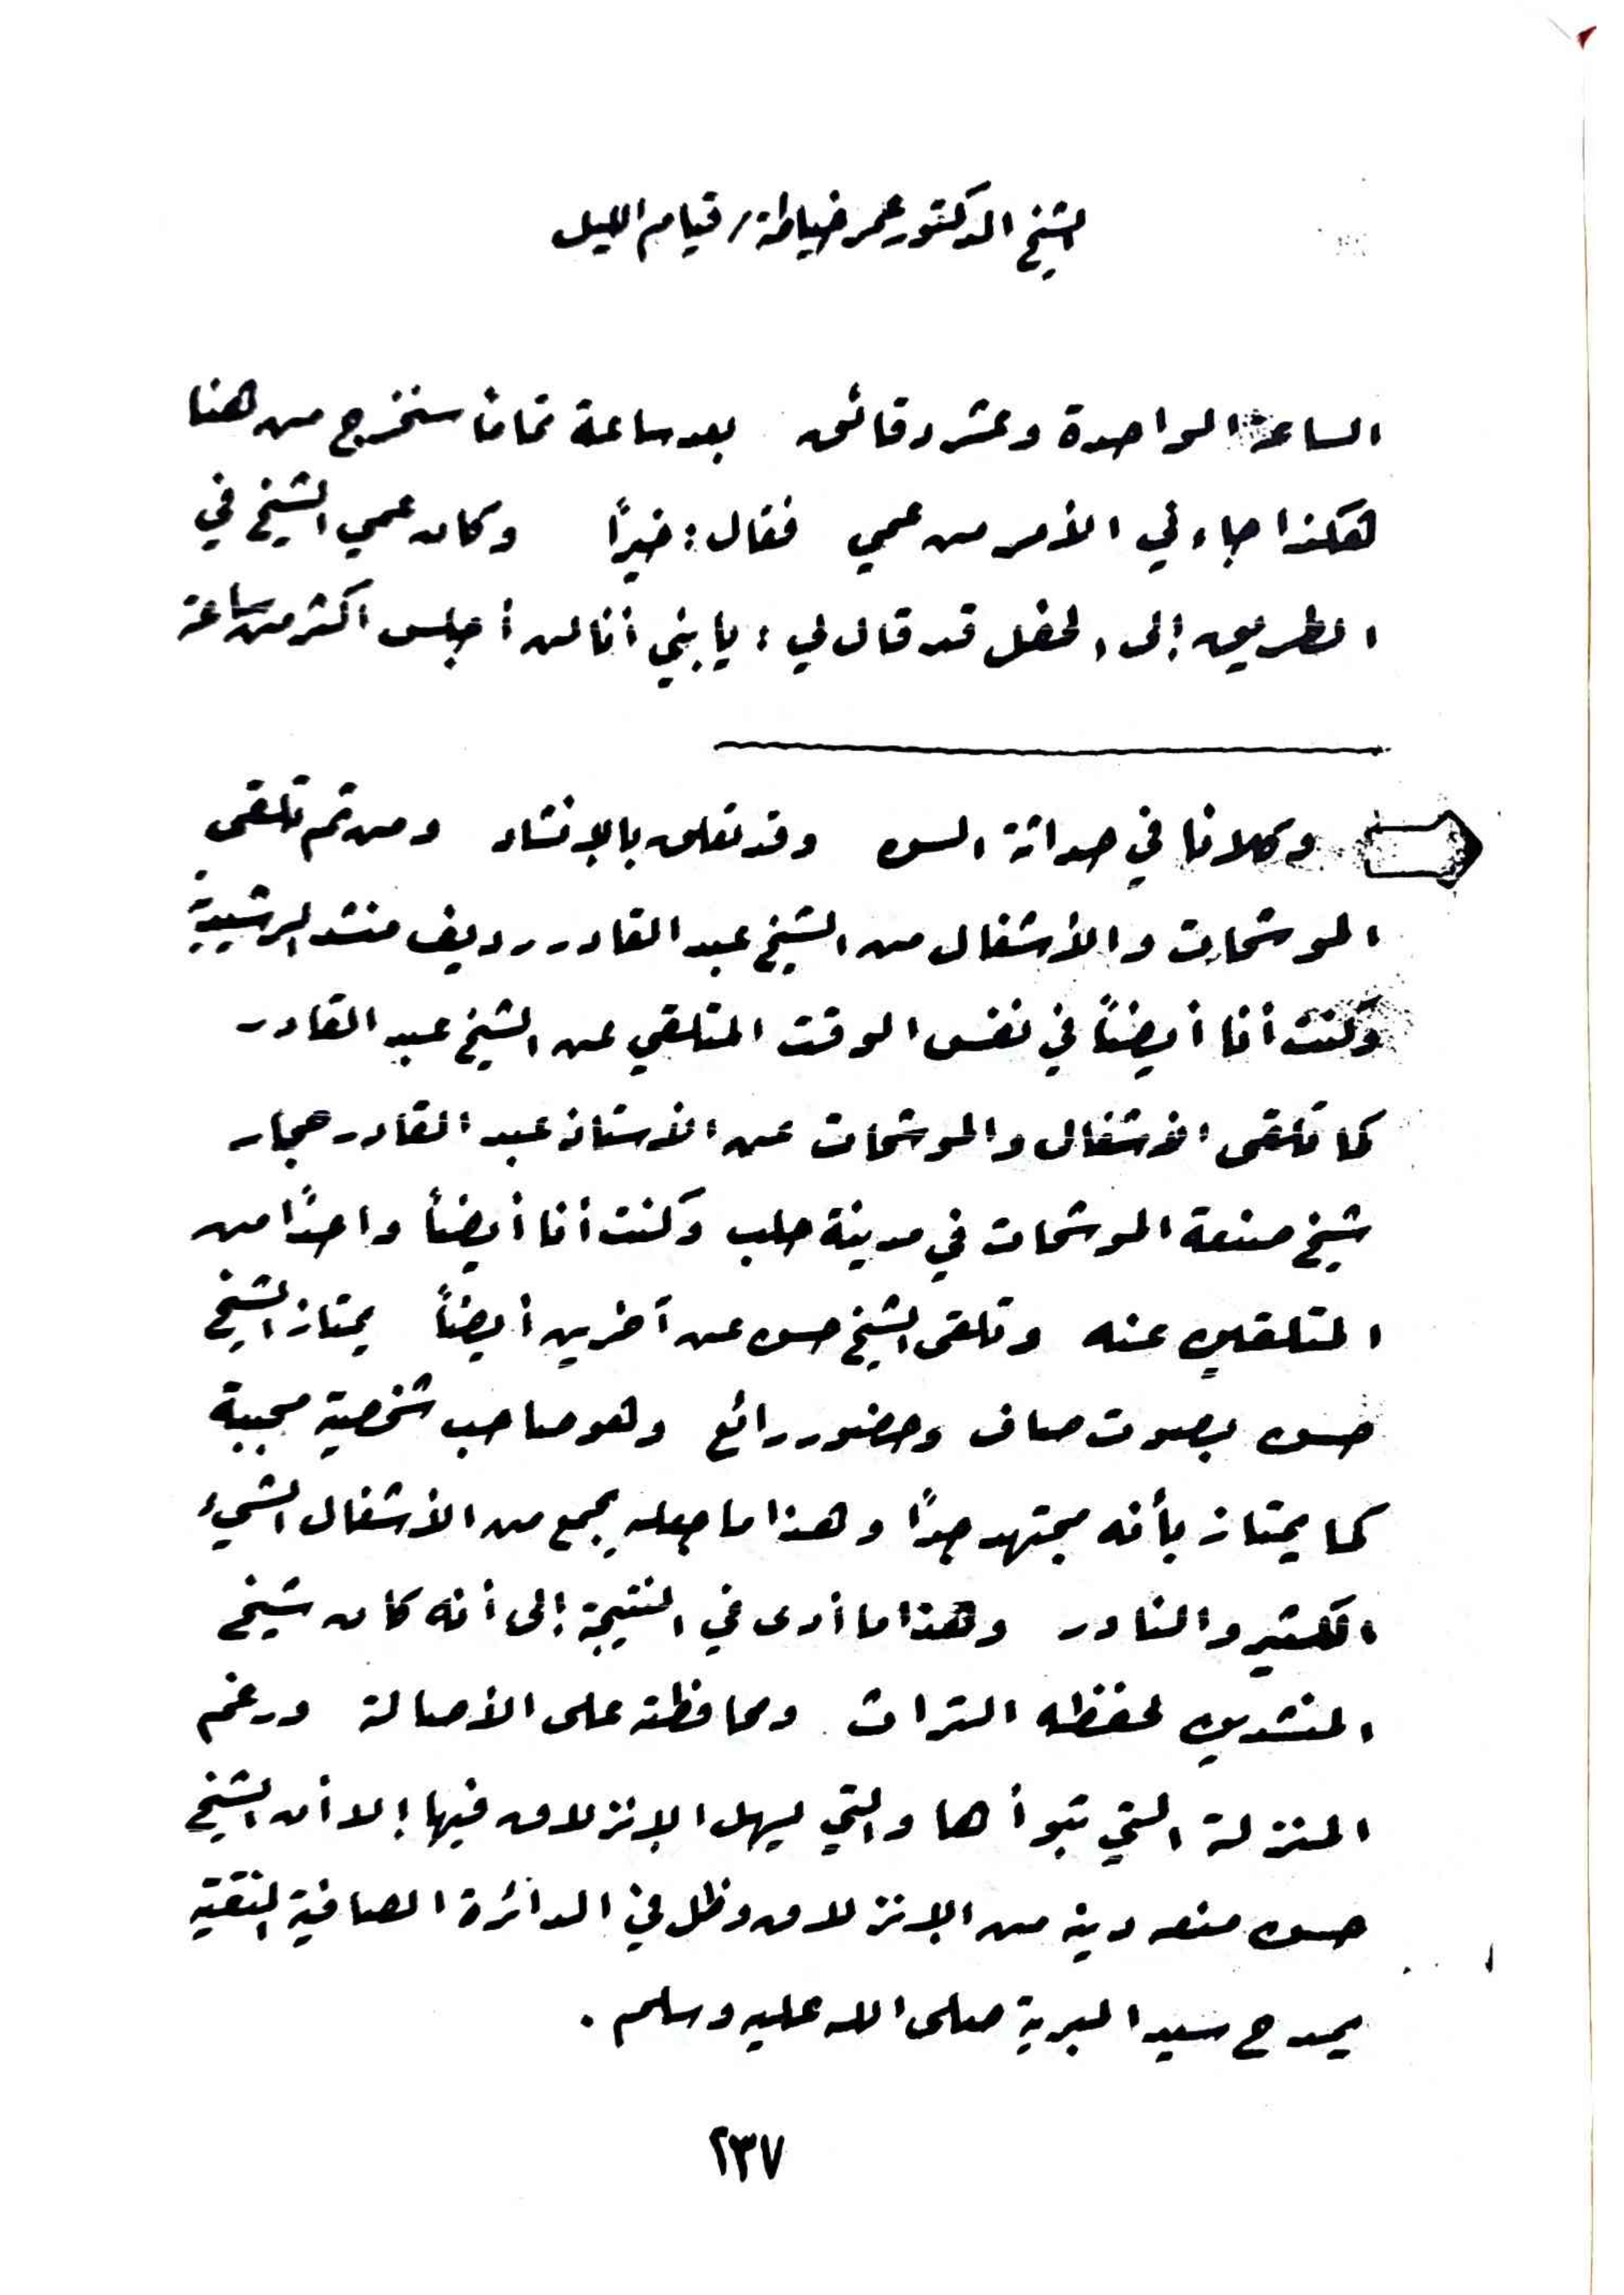 الشيخ الدكتور عمر خياطة / قيام الليل
الساعة الواحدة وعشر دقائق بعد ساعة تماماً سنخرج من هنا
هكذا جاءني الأمر من عمي فقال : خيراً وكان عمي الشيخ في
الطريق إلى الحفل قد قال لي : يا بني أنا لن أجلس اكثر من ساعة
وكلانا في حداثة السن وقد تعلق بالإنشاد ومن ثم تلقى
الموشحات والأشغال من الشيخ عبد القادر رديف منشد الرشيدية
وكنت أنا أيضاً في نفس الوقت المتلقي عن الشيخ عبد القادر
كما تلقى الأشغال والموشحات عن الأستاذ عبد القادر حجار
شيخ صنعة الموشحات في مدينة حلب وكنت أنا أيضاً واحداً من
المتلقين عنه وتلقى الشيخ حسن عن آخرين أيضاً يمتاز الشيخ
حسن بصوت صاف وحضور رائع وهو صاحب شخصية محببة
كما يمتاز بأنه مجتهد جداً وهذا ما جعله يجمع من الأشغال الشيء
الكثير والنادر وهذا ما أدى في النتيجة إلى أنه كان شيخ
المنشدين لحفظه التراث ومحافظة على الأصالة ورغم
المنزلة التي تبوأها والتي يسهل الإنزلاق فيها إلا أن الشيخ
حسن منعه دينه من الإنزلاق وظل في الدائرة الصافية النقية
يمدح سيد البرية صلى الله عليه وسلم .
٢٣٧